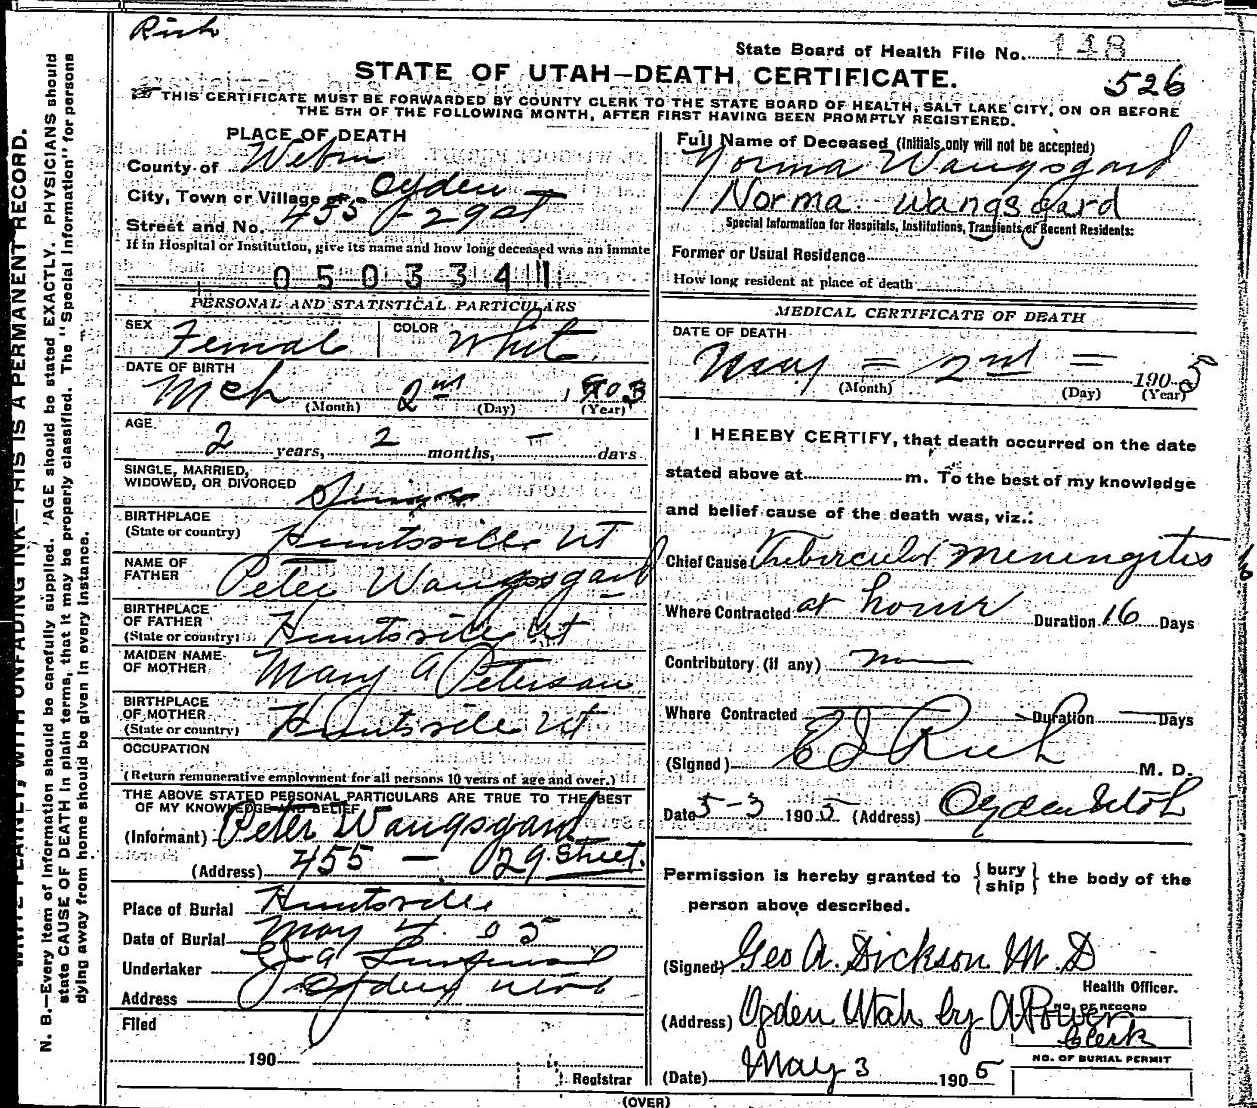 Rich
State Board of Health File No. 118
STATE OF UTAH—DEATH CERTIFICATE.
526
THIS CERTIFICATE MUST BE FORWARDED BY COUNTY CLERK TO THE STATE BOARD OF HEALTH, SALT LAKE CITY, ON OR BEFORE
THE 5TH OF THE FOLLOWING MONTH, AFTER FIRST HAVING BEEN PROMPTLY REGISTERED.
WRITE PLAINLY, WITH UNFADING INK—THIS IS A PERMANENT RECORD.
N. B.—Every item of Information should be carefully supplied. AGE should be stated EXACTLY. PHYSICIANS should
state CAUSE OF DEATH in plain terms, that it may be properly classified. The "Special Information" for persons
dying away from home should be given in every instance.
PLACE OF DEATH
County of Weber
City, Town or Village Ogden
Street and No. 455 - 29 St
If in Hospital or Institution, give its name and how long deceased was an inmate
0 5 0 3 3 4 1
PERSONAL AND STATISTICAL PARTICULARS
SEX Female COLOR White
DATE OF BIRTH
Mch 2nd 1903
(Month) (Day) (Year)
AGE
2 years, 2 months, — days
SINGLE, MARRIED,
WIDOWED, OR DIVORCED Single
BIRTHPLACE
(State or country) Huntsville Ut
NAME OF
FATHER Peter Wangsgard
BIRTHPLACE
OF FATHER
(State or country) Huntsville Ut
MAIDEN NAME
OF MOTHER Mary A Peterson
BIRTHPLACE
OF MOTHER
(State or country) Huntsville Ut
OCCUPATION
(Return remunerative employment for all persons 10 years of age and over.)
THE ABOVE STATED PERSONAL PARTICULARS ARE TRUE TO THE BEST
OF MY KNOWLEDGE AND BELIEF
(Informant) Peter Wangsgard
(Address) 455 — 29 Street.
Place of Burial Huntsville
Date of Burial May 4. 05
Undertaker
Address Ogden Utah
Filed
190
Registrar
Full Name of Deceased (Initials only will not be accepted)
Norma Wangsgard
Norma Wangsgard
Special Information for Hospitals, Institutions, Transients or Recent Residents:
Former or Usual Residence
How long resident at place of death
MEDICAL CERTIFICATE OF DEATH
DATE OF DEATH
May = 2nd = 1905
(Month) (Day) (Year)
I HEREBY CERTIFY, that death occurred on the date
stated above at m. To the best of my knowledge
and belief cause of the death was, viz.:
Chief Cause Tubercular Meningitis
Where Contracted at home Duration 16 Days
Contributory (if any)
Where Contracted — Duration — Days
(Signed) E I Rich M. D.
Date 5-3 1905. (Address) Ogden Utah
Permission is hereby granted to { bury
ship } the body of the
person above described.
(Signed) Geo A. Dickson M. D
Health Officer.
(Address) Ogden Utah by A Power
Clerk
NO. OF RECORD
NO. OF BURIAL PERMIT
(Date) May 3 1905
(OVER)